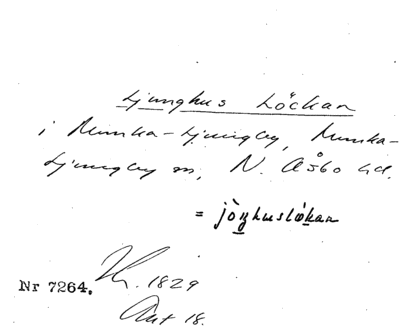 Ljunghus Löckan
i Munka-Ljungby, Munka-
Ljungby sn, N. Åsbo hd.
= jò̱ŋhuslø̱kan
Nr 7264. 1829
Akt 18.